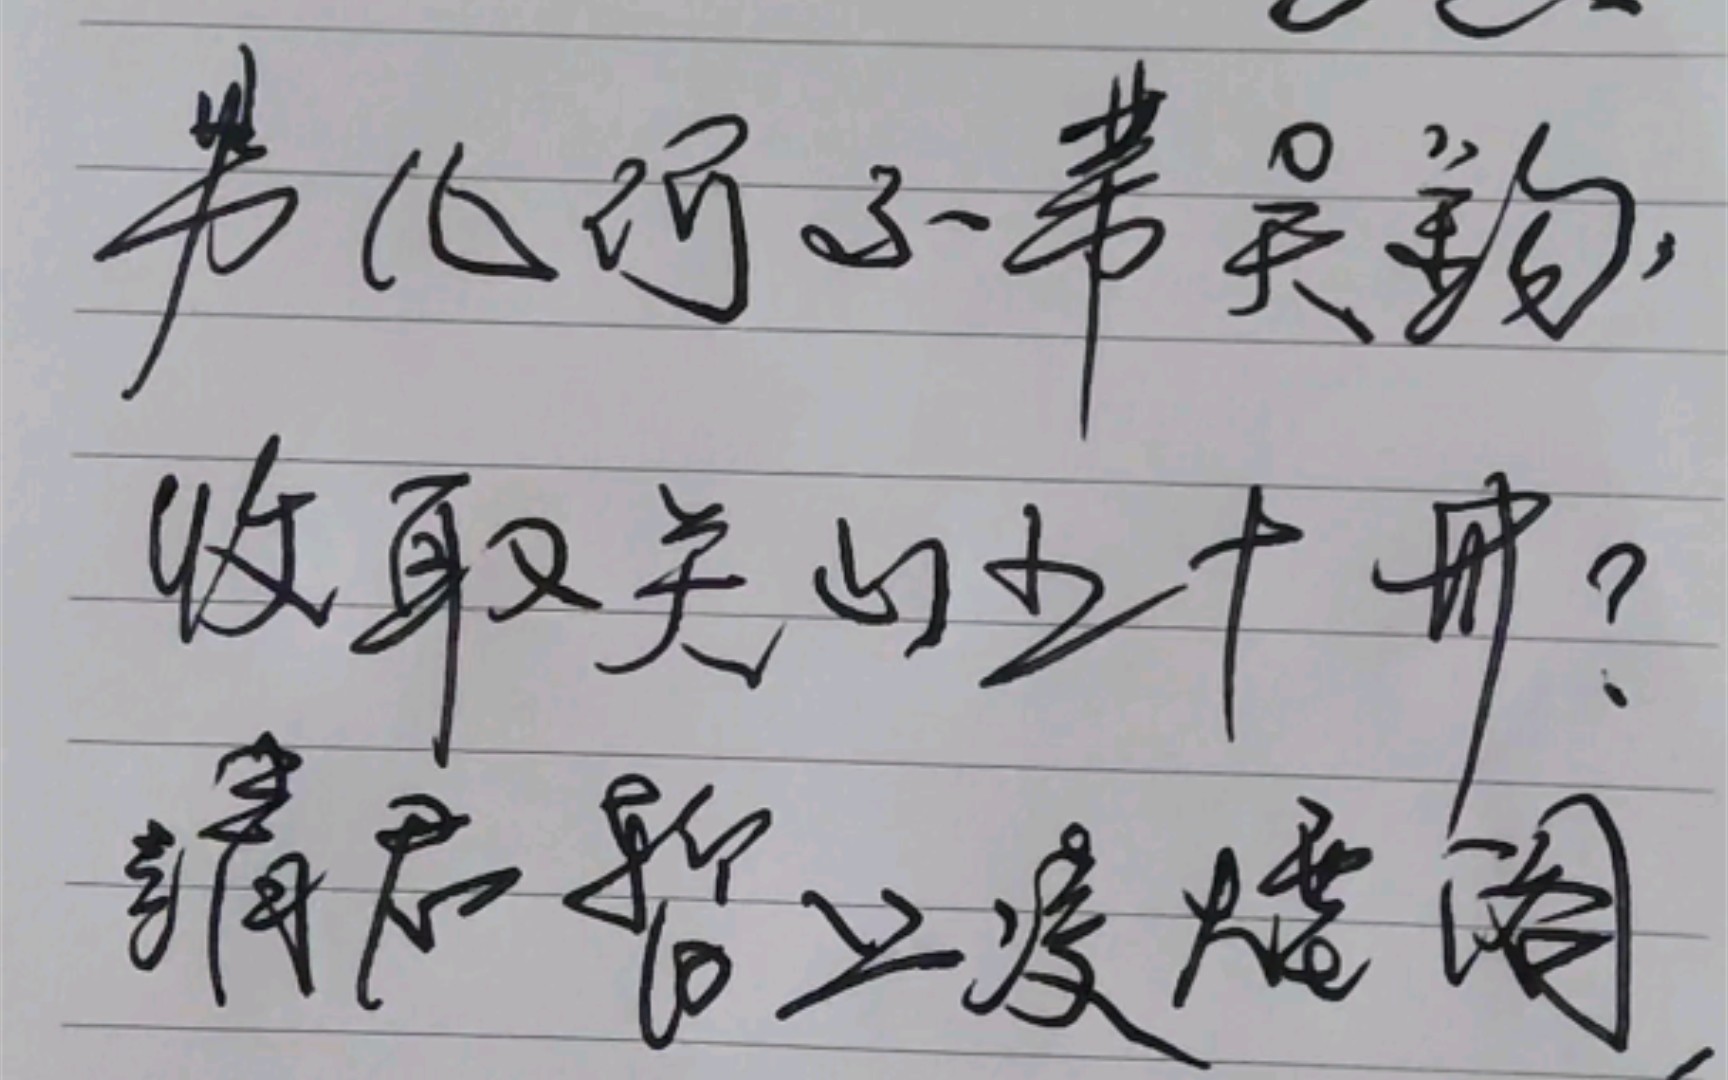 男儿何不带吴钩，
收取关山五十州？
请君暂上凌烟阁，